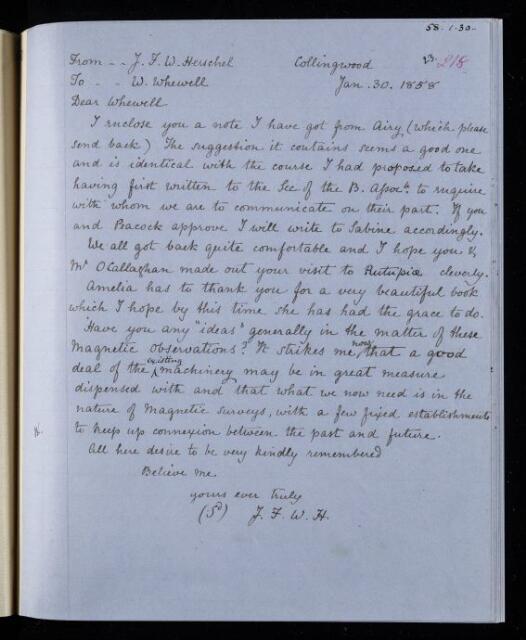 58.1.30.
From -- J. F. W. Herschel Collingwood 23. 218
To - - W. Whewell Jan. 30. 1858
Dear Whewell
I enclose you a note I have got from Airy (which please
send back) The suggestion it contains seems a good one
and is identical with the course I had proposed to take
having first written to the Sec of the B. Assocn. to enquire
with whom we are to communicate on their part. If you
and Peacock approve I will write to Sabine accordingly.
We all got back quite comfortable and I hope you &
Mr O'Callaghan made out your visit to Rutupiæ cleverly.
Amelia has to thank you for a very beautiful book
which I hope by this time she has had the grace to do.
Have you any "ideas" generally in the matter of these
Magnetic observations? It strikes me now that a good
deal of the existing machinery may be in great measure
dispensed with and that what we now need is in the
nature of Magnetic Surveys, with a few fixed establishments
to keep up connexion between the past and future.
All here desire to be very kindly remembered
Believe me
yours ever truly
(Sd) J. F. W. H.